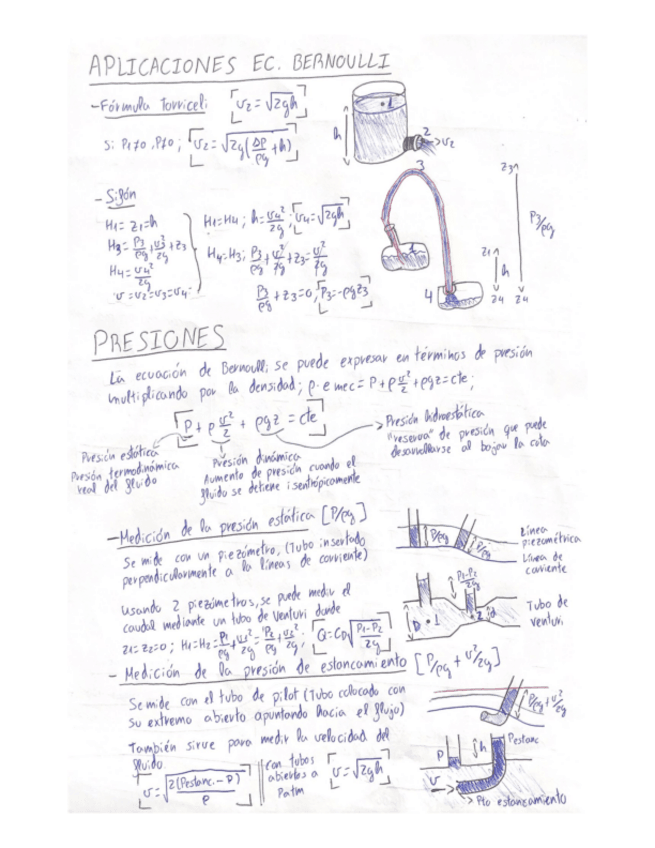 APLICACIONES EC. BERNOULLI
- Fórmula Torriceli [v₂ = √2gh]
Si P₁≠0, P₂≠0; [v₂ = √2g(ΔP/ρg + h)]
h
1
2
→v₂
- Sifón
H₁=z₁=h
H₃=P₃/ρg+v₃²/2g+z₃
H₄=v₄²/2g
v=v₂=v₃=v₄
H₁=H₄; h=v₄²/2g; [v₄=√2gh]
H₄=H₃; P₃/ρg+v²/2g+z₃=v²/2g
P₃/ρg+z₃=0; [P₃=-ρgz₃]
3
1
4
z₃
z₁
h
z₄ z₄
P₃/ρg
PRESIONES
La ecuación de Bernoulli se puede expresar en términos de presión
multiplicando por la densidad; ρ·e mec = P+ρv²/2+ρgz=cte;
[P + ρ v²/2 + ρgz = cte]
Presión estática
Presión termodinámica
real del fluido
Presión dinámica
Aumento de presión cuando el
fluido se detiene isentrópicamente
Presión hidroestática
"reserva" de presión que puede
desarrollarse al bajar la cota
- Medición de la presión estática [P/ρg]
Se mide con un piezómetro, (Tubo insertado
perpendicularmente a la líneas de corriente)
P/ρg
P/ρg
Línea
piezométrica
Línea de
corriente
Usando 2 piezómetros, se puede medir el
caudal mediante un tubo de Venturi donde
z₁=z₂=0; H₁=H₂=P₁/ρg+v₁²/2g=P₂/ρg+v₂²/2g; [Q=C_D√P₁-P₂/2g]
P₁-P₂/2g
D
1
2
d
Tubo de
venturi
- Medición de la presión de estancamiento [P/ρg + v²/2g]
Se mide con el tubo de pilot (Tubo colocado con
su extremo abierto apuntando hacia el flujo)
P/ρg+v²/2g
También sirve para medir la velocidad del
fluido.
[v=√2(Pestanc.-P)/ρ]
con tubos
abiertos a
Patm
[v=√2gh]
P
h
Pestanc
v
→ Pto estancamiento